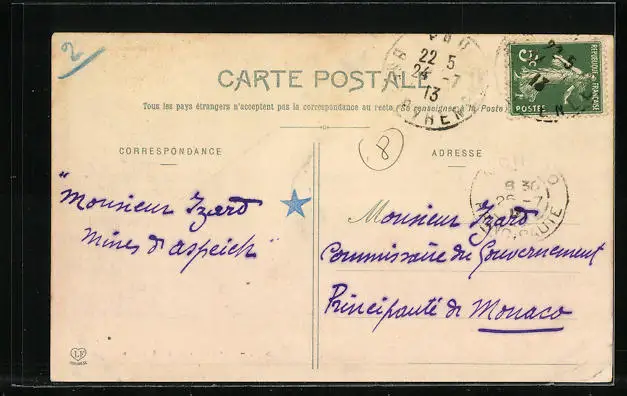 2
PAU
22 5
24 -7
13
Bses PYRENEES
REPUBLIQUE FRANÇAISE
5c
POSTES
22 5
13
CARTE POSTALE
Tous les pays étrangers n'acceptent pas la correspondance au recto (Se renseigner à la Poste)
8
CORRESPONDANCE
ADRESSE
8 30
26 -7
"Monsieur Izard
mines d'aspeich"
Monsieur Izard
Commissaire du Gouvernement
Principauté de Monaco
LF